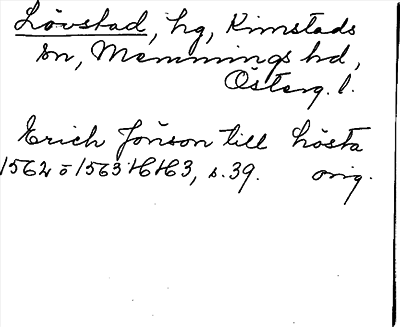 Lövstad, hg, Kimstads
sn, Memmings hd,
Österg. l.
Erich Jönson till Lösta
1562 o 1563 HH3, s. 39. orig.